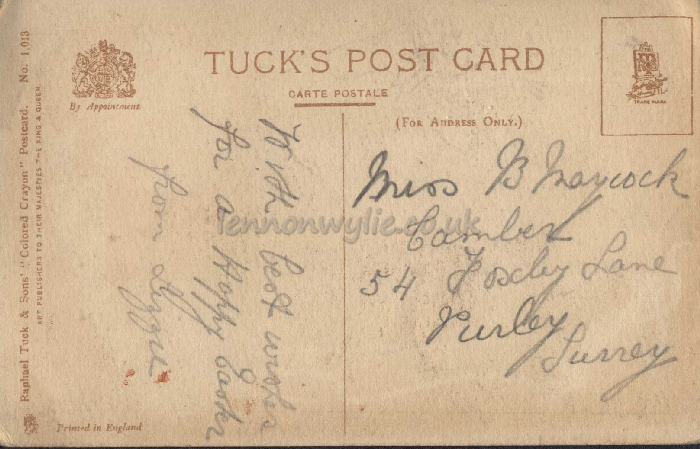 TUCK'S POST CARD
CARTE POSTALE
(FOR ADDRESS ONLY.)
By Appointment
TRADE MARK
Raphael Tuck & Sons' "Colored Crayon" Postcard. No. 1,013
ART PUBLISHERS TO THEIR MAJESTIES THE KING & QUEEN.
With best wishes
for a Happy Easter
from Lizzie
Miss B Maycock
54 Foxley Lane
Purley
Surrey
Printed in England
lennonwylie.co.uk